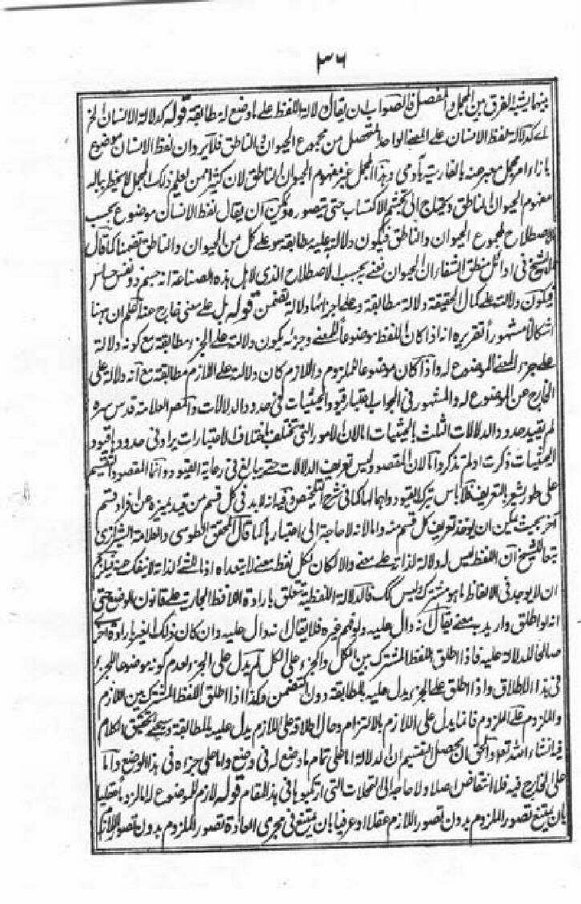 ٣٦
بينهما يشبه الفرق من المجمل والمفصل فالصواب ان يقال دلالة اللفظ على ما وضع له مطابقة قوله كدلالة الانسان الخ
اے كدلالة لفظ الانسان على المعنے الواحد المتحصل من مجموع الحيوان والناطق فلا يرد ان لفظ الانسان موضوع
بازاء امر مجمل معبر عنه بالفارسية بآدمي وهذا المجمل غير مفهوم الحيوان الناطق لان كثيرا ممن يعلم ذلك المجمل لا يخطر بباله
مفهوم الحيوان الناطق ويحتاج الى تجشم الاكتساب حتى يتصوره ويمكن ان يقال لفظ الانسان موضوع بحسب
الاصطلاح لمجموع الحيوان والناطق فيكون دلالته عليه مطابقة وعلى كل من الحيوان والناطق تضمنا كما قال
الشيخ فى اوائل منطق الشفاء ان الحيوان نعنے بحسب الاصطلاح الذى لاهل هذه الصناعة انه جسم ذو نفس حساس
فيكون دلالته على كمال الحقيقة دلالة مطابقة وعلى اجزائها دلالة تضمن قوله بل على معنى خارج عنه اعلم ان ههنا
اشكالا مشهورا تقريره انه اذا كان اللفظ موضوعا للمعنے وجزئه يكون دلالته على الجزء مطابقة مع كونه دلالة
على جزء المعنے الموضوع له واذا كان موضوعا للملزوم واللازم كان دلالته على اللازم مطابقة مع انه دلالة على
الخارج عن الموضوع له والمشهور فى الجواب اعتبار قيود الحيثيات فى حدود الدلالات والمصم العلامة قدس سره
لم يقيد حدود الدلالات الثلث بالحيثيات اما لان الامور التى تختلف باختلاف الاعتبارات يراد فى حدودها قيود
الحيثيات ذكرت او لم تذكر واما لان المقصود ليس تعريف الدلالات حتے يبالغ فى رعاية القيود وانما المقصود التقسيم
على طور يشعر بالتعريف فلا باس بترك القيود واهمالها كما فى شرح التلخيص وفيه انه لابد فى كل قسم من قيد يميزه عن اداء قسم
آخر بحيث يمكن ان يوخذ تعريف كل قسم منه واما لانه لا حاجة الى اعتبارها كما قال المحقق الطوسى والعلامة الشيرازى
تبعا للشيخ ان اللفظ ليس له دلالة لذاته على معنے والا لكان لكل لفظ معنے لا يتعداه اذ ما للشئ لذاته لا ينفك عنه فيلزم
ان لا يوجد فى الالفاظ ما هو مشترك وليس كك فالدلالة اللفظية يتعلق بارادة اللافظ الجارية على قانون الوضع حتى
انه لو اطلق واريد به معنے يقال انه دال عليه ولو فهم غيره فلا يقال انه دال عليه وان كان ذلك الغير بارادة اخرى
صالحا للدلالة عليه فاذا اطلق اللفظ المشترك بين الكل والجزء على الكل لم يدل على الجزء لعدم كونه موضوعا للجزء
فى هذا الاطلاق واذا اطلق على الجزء يدل عليه بالمطابقة دون التضمن وكذا اذا اطلق اللفظ المشترك بين اللازم
والملزوم على الملزوم فانما يدل على اللازم بالالتزام وحال اطلاقه على اللازم يدل عليه بالمطابقة وسيجئ تحقيق الكلام
فيه انشاء الله تعالى والحق ان محصل التقسيم ان الدلالة اما على تمام ما وضع له فى وضع واما على جزءه فى هذا الوضع واما
على الخارج فيه فلا انتقاض اصلا ولا حاجة الى التمحلات التى ارتكبوها فى هذا المقام قوله لازم للموضوع له لزوما عقليا
بان يمتنع تصور الملزوم بدون تصور اللازم عقلا او عرفيا بان يمتنع فى مجرى العادة تصور الملزوم بدون تصور اللازم